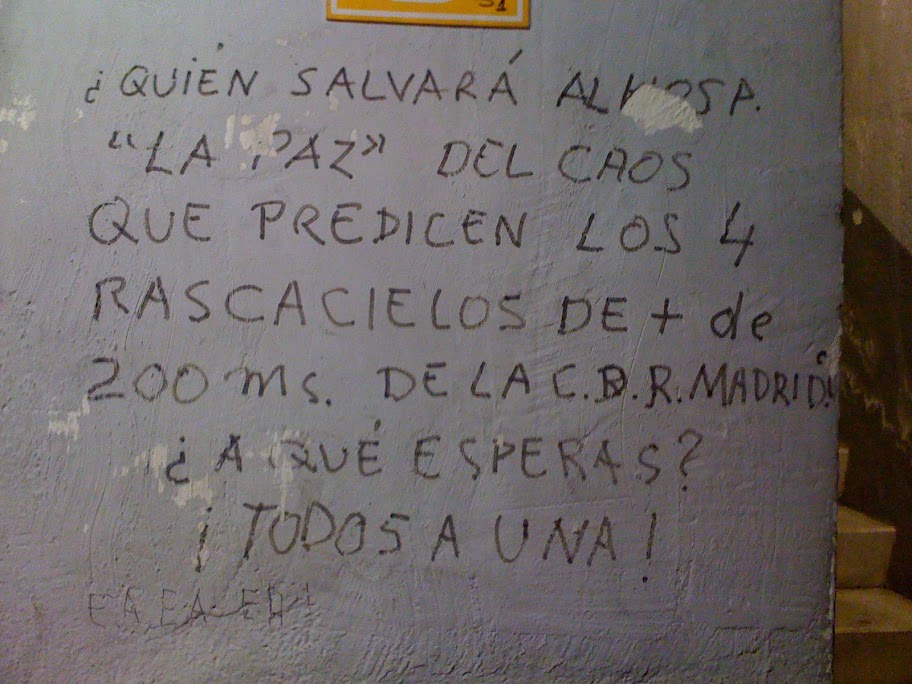 ¿QUIÉN SALVARÁ AL HOSP.
"LA PAZ" DEL CAOS
QUE PREDICEN LOS 4
RASCACIELOS DE + de
200 ms. DE LA C.D.R. MADRID?
¿A QUÉ ESPERAS?
¡TODOS A UNA!